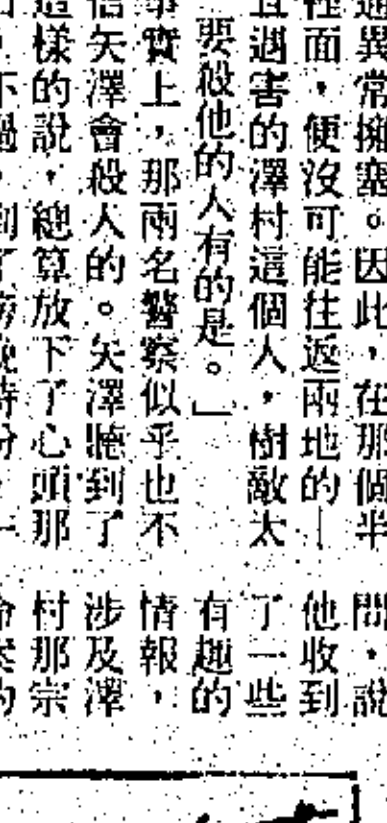 通異常擁塞。因此，在那個半
裡面，便沒可能往返兩地的｜
且遇害的澤村這個人，樹敵太
要殺他的人有的是。」
事實上，那兩名警察似乎也不
信矢澤會殺人的。矢澤聽到了
這樣的說，總算放下了心頭那
問，說
他收到
了一些
有趣的
情報，
涉及澤
村那宗
命案的